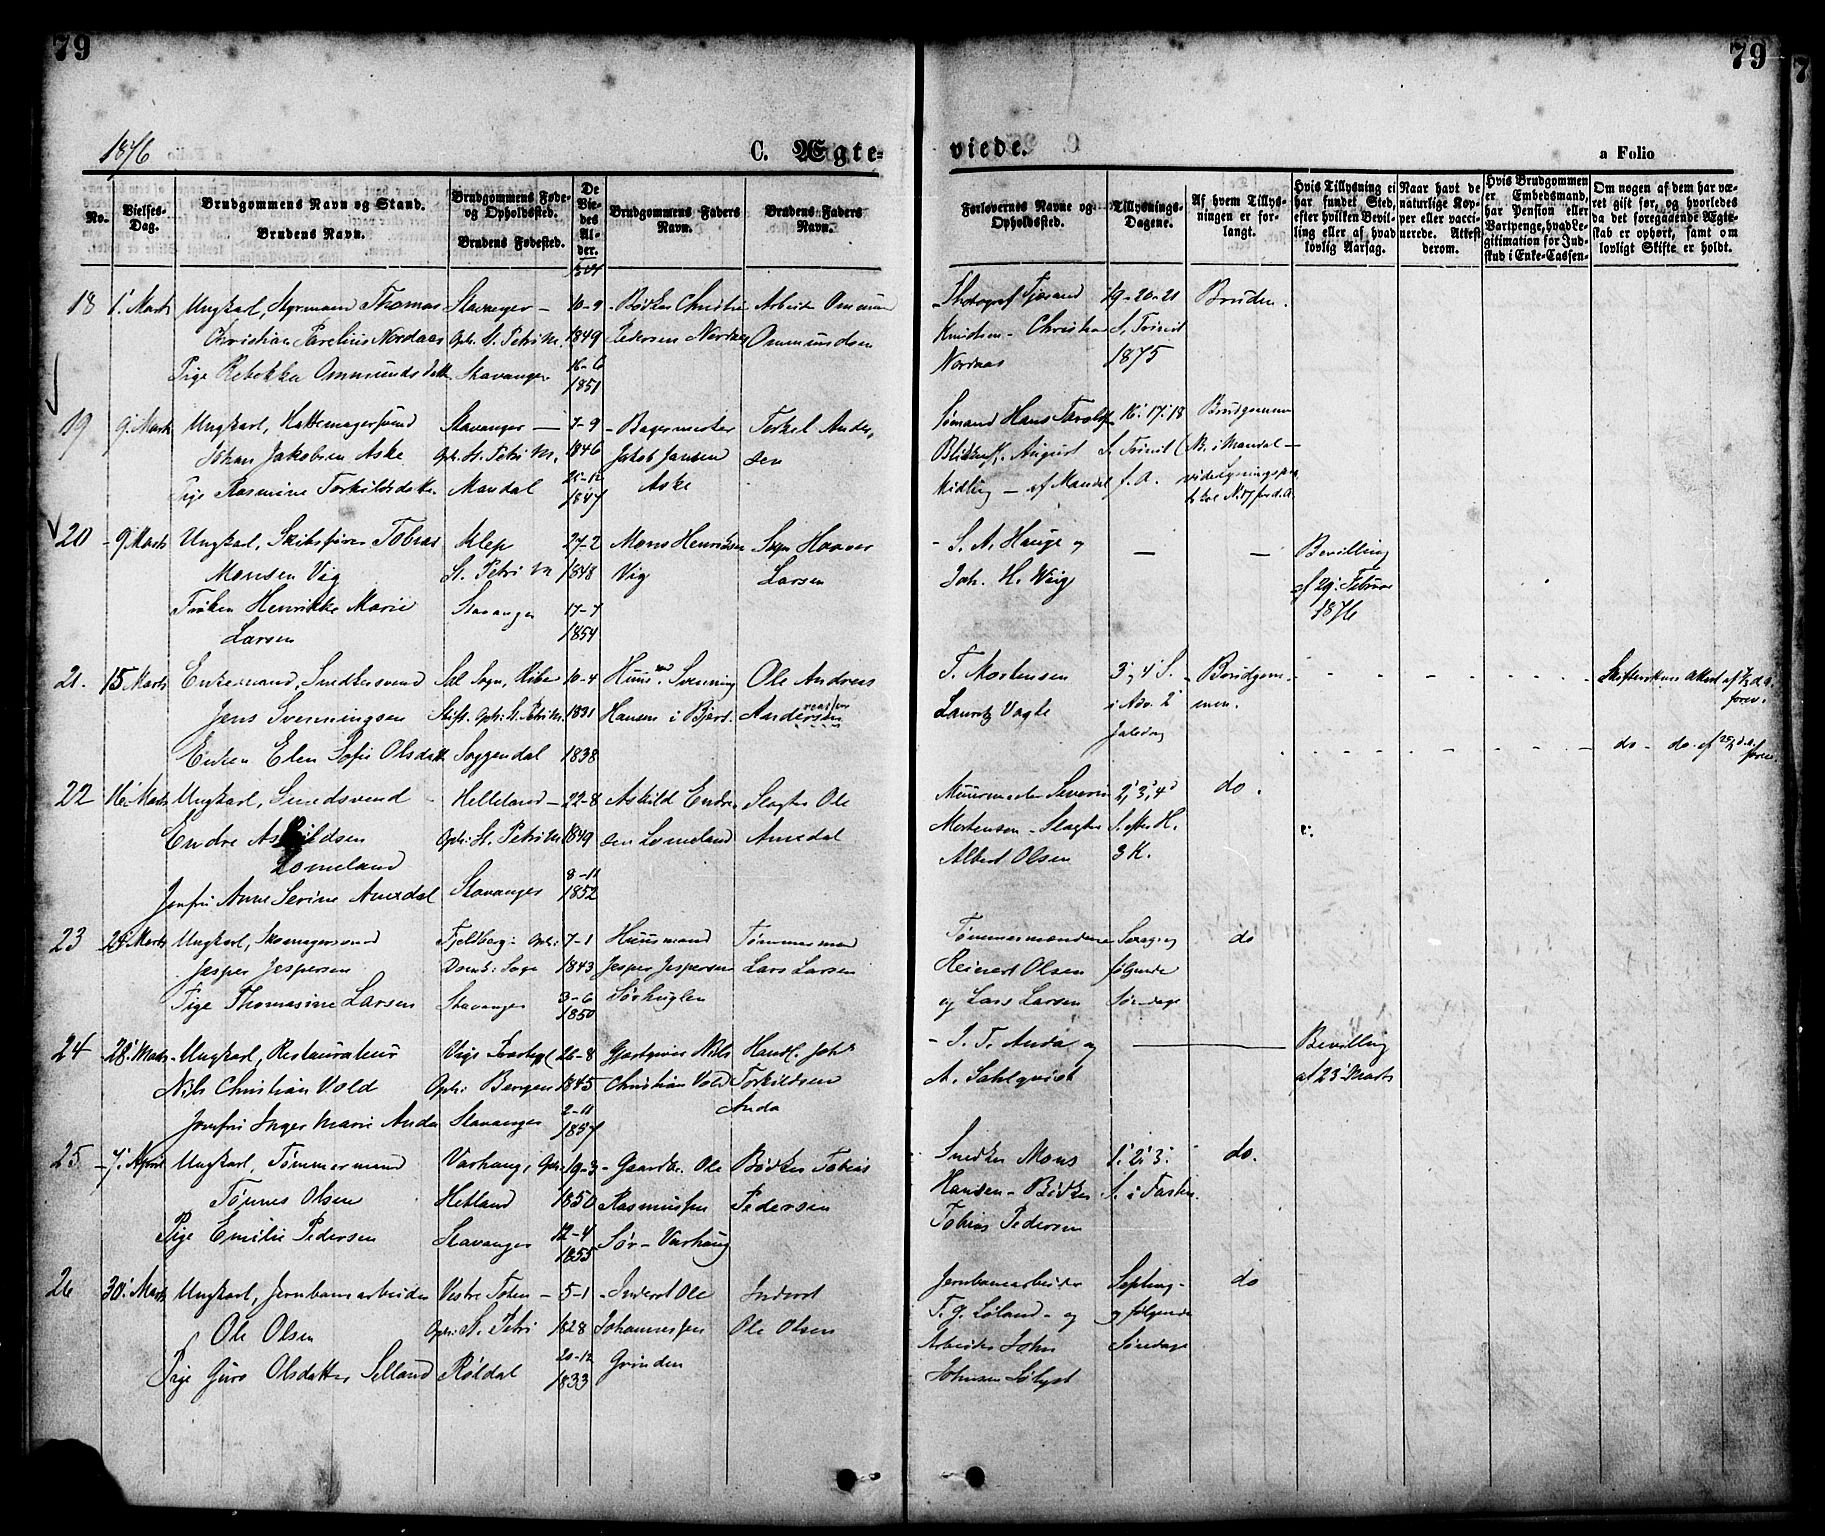 79
79
7
1876
C. Ægte-
viede.
a Folio
No.
Vielses-Dag.
Brudgommens Navn og Stand.
Brudens Navn.
Brudgommens Føde- og Opholdssted.
Brudens Fødested.
De Viedes Alder.
Brudgommens Faders Navn.
Brudens Faders Navn.
Forlovernes Navne og Opholdssted.
Tillysnings-Dagene.
Af hvem Tillysningen er forlangt.
Hvis Tillysning ei har fundet Sted, efter hvilken Bevilling eller af hvad lovlig Aarsag.
Naar havt de naturlige Kopper eller vaccinerede. Attest derom.
Hvis Brudgommen er Embedsmand, har Pension eller Vartpenge, hvad Legitimation for Indskud i Enke-Cassen-
Om nogen af dem har været gift før, og hvorledes da det foregaaende Ægteskab er ophørt, samt om lovligt Skifte er holdt.
18 1' Marts Ungkarl, Styrmand Thomas Stavanger — 10-9 Bødker Christian Arbeider Ommund
Christian Parelius Nordaas Oph. St. Petri M. 1849 Pedersen Nordaas Ommundsen
Pige Rebekka Ommundsdatt. Stavanger 16-6 1851
Fotograf Tjerand 19-20-21 Bruden.
Knudsen - Christian S. Trinit
Nordaas 1875
19 9' Marts Ungkarl, Hattemagersvend Stavanger — 7-9 Bagermester Torkel Ander-
Johan Jakobsen Aske Oph. St. Petri M. 1846 Jakob Jansen sen
Pige Rasmine Torkildsdatter Mandal 1847 Aske
Sømand Hans 16' 17' 18 Brudgommen
August S. Trinit (N. i Mandal —
Kidling — af Mandal f. A.
20 9' Marts Ungkarl, Skibsfører Tobias Klep 27-2 Mons Henriksen Haaver
Monsen Vig St. Petri M 1848 Vig Larsen
Frøken Henrikke Marie Stavanger 17-7
Larsen 1854
S. A. Hauge og — — Bevilling
Joh. H. Wiig af 29' Februar
1876
21. 15 Marts Enkemand, Snedkersvend Sal Sogn, Ribe 10-4 Huusmd Svenning Ole Andreas
Jens Svenningsen Stift. Oph: St. Petri M. 1831 Hansen i Bjert. Andersen
Enken Elen Sofie Olsdatt Soggendal 1838
T. Mortensen 3' og 4' S. Brudgom-
Lauritz Vagle i Adv. 2' men.
Juledag
do - do. af
22 16' Marts Ungkarl, Smedsvend Helleland — 22-8 Askild Endre- Slagter Ole
Endre Askildsen Oph: St. Petri M 1849 sen Lomeland Anedal
Lomeland 8-11
Jomfru Anne Serine Anedal Stavanger 1852
Muurmester Severin 2', 3', 4' do.
Mortensen - Slagter S. efter H.
Albert Olsen 3 K.
23 Marts Ungkarl, Skomagersvend Fjeldberg - Oph: 7-1 Huusmand Tømmermand
Jesper Jespersen 1843 Jesper Jespersen Lars Larsen
Pige Thomasine Larsen Stavanger 3-6 1850 Sørhuglen
Tømmermændene do
Reinert Olsen følgende
og Lars Larsen Søndage
24 28' Marts Ungkarl, Restaurateur 26-8 Gjæstgiver Nils Handl. Joh.
Nils Christian Vold Oph: Bergen 1845 Christian Vold Torkildsen
Jomfru Inger Marie Anda Stavanger 2-11 1857 Anda
T. Anda og Bevilling
A. Sahlqvist af 23' Marts
25 7' April Ungkarl, Tømmermand Varhaug, Oph: 19-3 Gaardbr. Ole Bødker Tobias
Tønnes Olsen Hetland 1850 Rasmussen Pedersen
Pige Emilie Pedersen Stavanger 12-4 1855 Sør-Varhaug
Snedker Mons 1' 2' 3' do.
Hansen - Bødker S. i Fasten.
Tobias Pedersen
26 30' Marts Ungkarl, Jernbanearbeider Vestre Toten — 5-1 Inderst Ole Inderst
Ole Olsen Oph: St. Petri 1828 Johannessen Ole Olsen
Pige Guro Olsdatter Selland Røldal 20-12 1833 Grinden
Jernbanearbeider Septuag- do
T. G. Løland - og og følgende
Arbeider John Søndage
Johnsen Sølyst